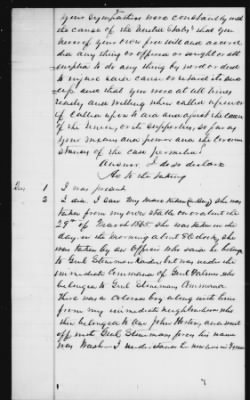 your sympathies were constantly with
the cause of the United States? that you
never of your own free will and accord
did any thing or offered or sought or
to do any thing by word or deed
to injure said cause or retard its
and that you were at all times
ready and willing when called upon
if called upon to aid and assist the cause
of the Union, or its supporters, so far as
your means and power and the circum
stances of the case permitted?
Answer I do so declare
As to the taking
1 I was present
2 I did. I saw my mare taken she was
taken from my own stable on or about the
29th of March 1865 she was taken in the
day, in the morning about 9 o'clock, she
was taken by an Officer who said he belong
to Genl command but was under the
immediate command of Genl Palmer who
belonged to Genl Command
There was a colored boy along with him
from my immediate neighborhood who
then belonged to John and went
off with Genl forces his name
was